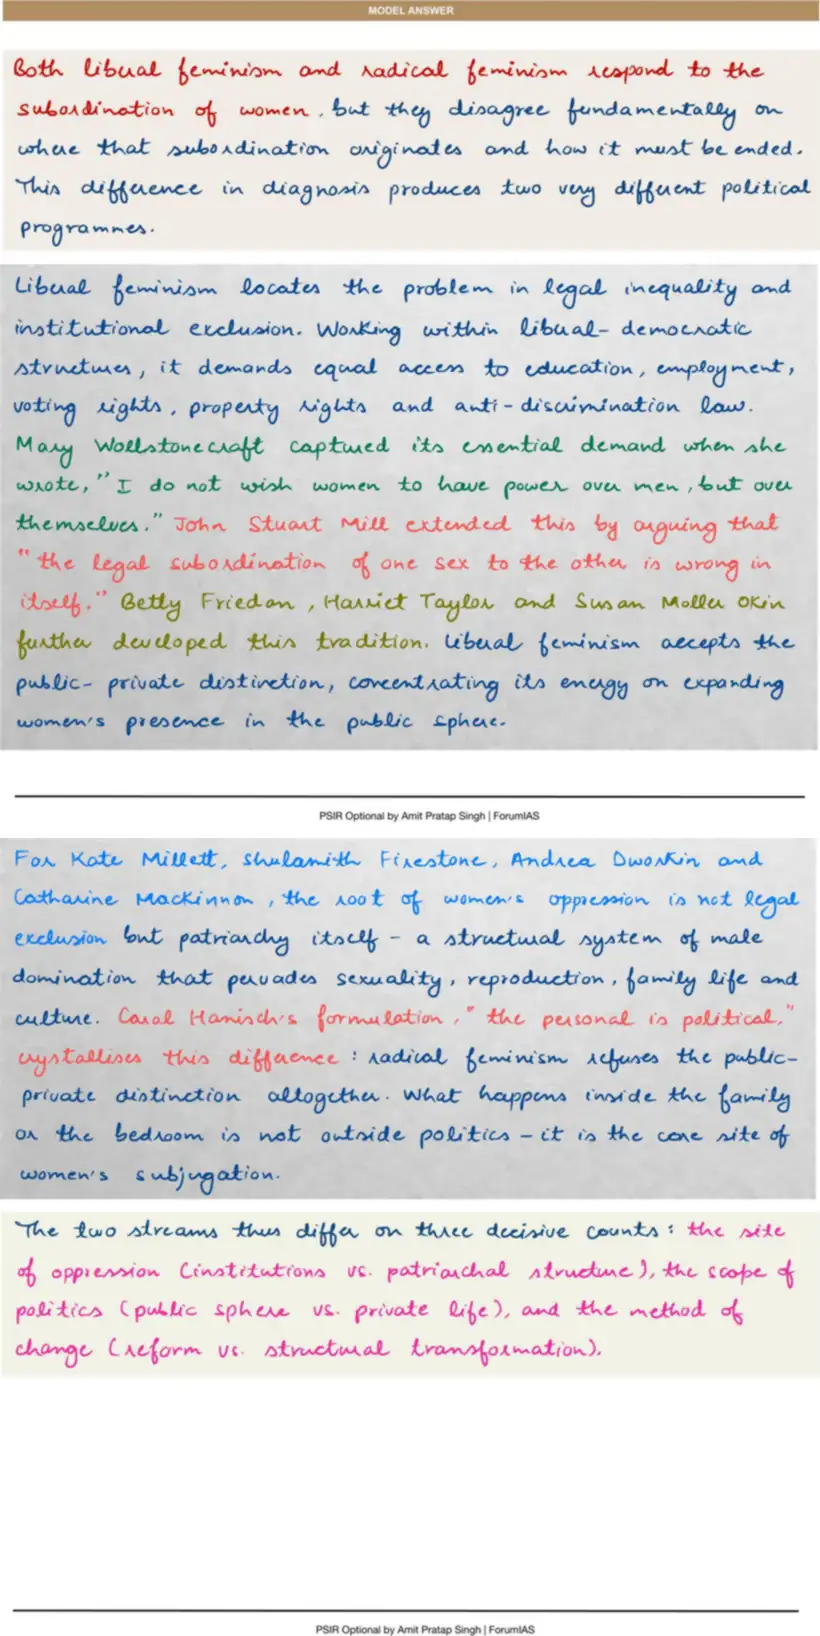 MODEL ANSWER
Both liberal feminism and radical feminism respond to the
subordination of women, but they disagree fundamentally on
where that subordination originates and how it must be ended.
This difference in diagnosis produces two very different political
programmes.
Liberal feminism locates the problem in legal inequality and
institutional exclusion. Working within liberal-democratic
structures, it demands equal access to education, employment,
voting rights, property rights and anti-discrimination law.
Mary Wollstonecraft captured its essential demand when she
wrote, "I do not wish women to have power over men, but over
themselves." John Stuart Mill extended this by arguing that
"the legal subordination of one sex to the other is wrong in
itself." Betty Friedan, Harriet Taylor and Susan Moller Okin
further developed this tradition. Liberal feminism accepts the
public-private distinction, concentrating its energy on expanding
women's presence in the public sphere.
PSIR Optional by Amit Pratap Singh | ForumIAS
For Kate Millett, Shulamith Firestone, Andrea Dworkin and
Catharine MacKinnon, the root of women's oppression is not legal
exclusion but patriarchy itself - a structural system of male
domination that pervades sexuality, reproduction, family life and
culture. Carol Hanisch's formulation, "the personal is political,"
crystallises this difference: radical feminism refuses the public-
private distinction altogether. What happens inside the family
or the bedroom is not outside politics - it is the core site of
women's subjugation.
The two streams thus differ on three decisive counts: the site
of oppression (institutions vs. patriarchal structure), the scope of
politics (public sphere vs. private life), and the method of
change (reform vs. structural transformation).
PSIR Optional by Amit Pratap Singh | ForumIAS